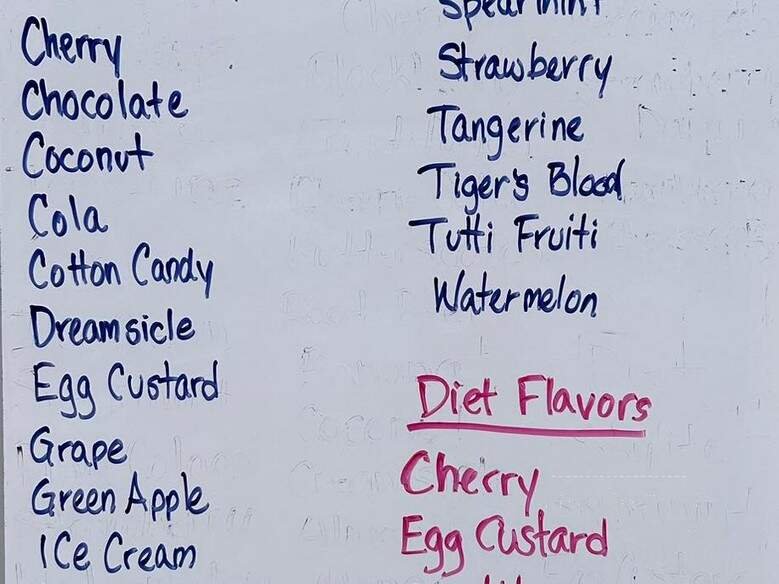 Cherry
Chocolate
Coconut
Cola
Cotton Candy
Dreamsicle
Egg Custard
Grape
Green Apple
ICe Cream
Spearmint
Strawberry
Tangerine
Tiger's Blood
Tutti Fruiti
Watermelon
Diet Flavors
Cherry
Egg Custard